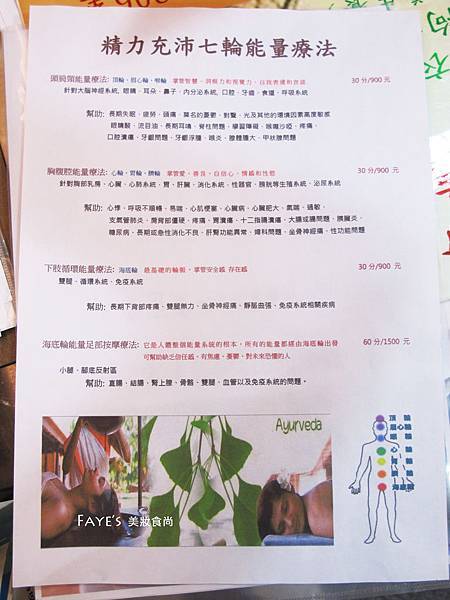 精力充沛七輪能量療法
頭頸頸能量療法: 頂輪、眉心輪、喉輪 掌管智慧、洞察力和視覺力、自我表達和言談 30分/900 元
針對大腦神經系統, 眼睛、耳朵、鼻子、內分泌系統, 口腔、牙齒、食道、呼吸系統
幫助: 長期失眠、疲勞、頭痛、莫名的憂鬱、對聲、光及其他的環境因素高度敏感
眼睛酸、流目油、長期耳鳴、脊柱問題、學習障礙、喉嚨沙啞、疼痛、
口腔潰瘍、牙齦問題、牙齦浮腫、喉炎、腺體腫大、甲狀腺問題
胸腹腔能量療法: 心輪、胃輪、臍輪 掌管愛、善良、自信心、情感和性慾 30分/900 元
針對胸部乳房、心臟、心肺系統、胃、肝臟、消化系統、性器官、膀胱等生殖系統、泌尿系統
幫助: 心悸、呼吸不順暢、易喘、心肌梗塞、心臟病、心臟肥大、氣喘、過敏、
支氣管肺炎、肩背部僵硬、疼痛、胃潰瘍、十二指腸潰瘍、大腸或腸問題、胰臟炎、
糖尿病、長期或急性消化不良、肝腎功能異常、婦科問題、坐骨神經痛、性功能問題
下肢循環能量療法: 海底輪 最基礎的輪脈，掌管安全感 存在感 30分/900 元
雙腿、循環系統、免疫系統
幫助: 長期下背部疼痛、雙腿無力、坐骨神經痛、靜脈曲張、免疫系統相關疾病
海底輪能量足部按摩療法: 它是人體整個能量系統的根本，所有的能量都經由海底輪出發 60分/1500 元
可幫助缺乏信任感、有焦慮、憂鬱、對未來恐懼的人
小腿、腳底反射區
幫助: 直腸、結腸、腎上腺、骨骼、雙腿、血管以及免疫系統的問題。
Ayurveda
頂 輪
眉心輪
喉 輪
心 輪
胃 輪
臍 輪
海底輪
FAYE'S 美妝食尚